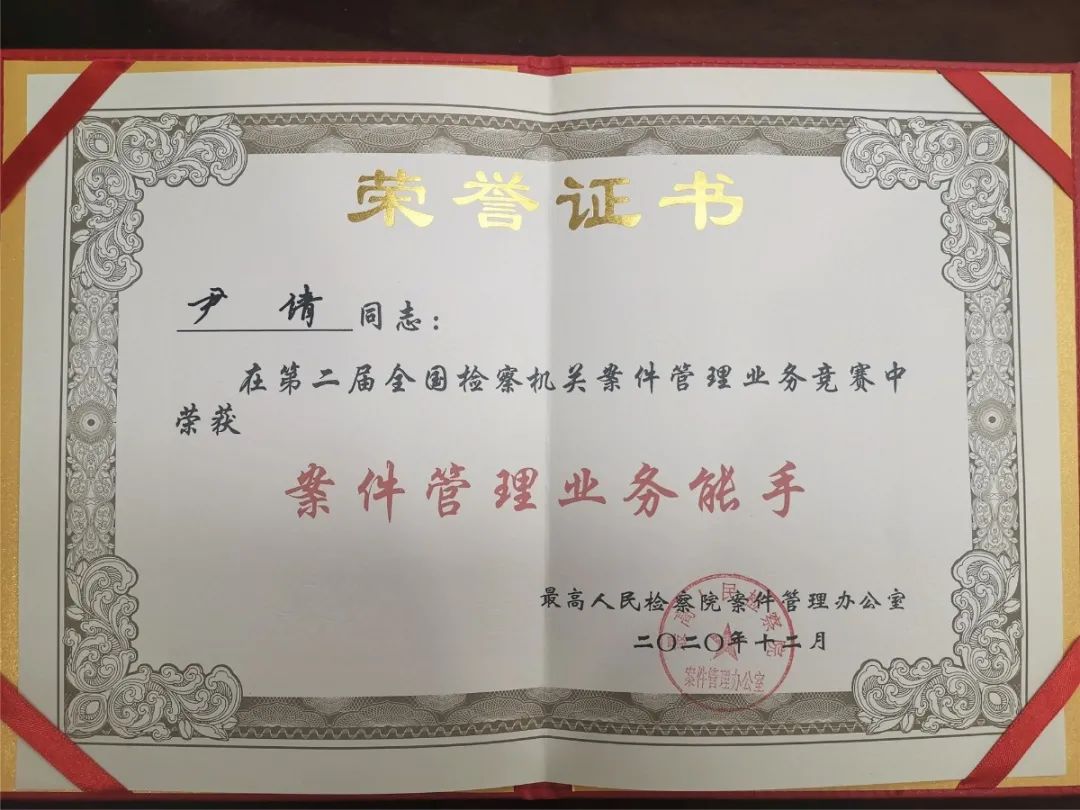 荣誉证书
尹 倩 同志：
在第二届全国检察机关案件管理业务竞赛中
荣获
案件管理业务能手
最高人民检察院案件管理办公室
二〇二〇年十二月
最高人民检察院
案件管理办公室